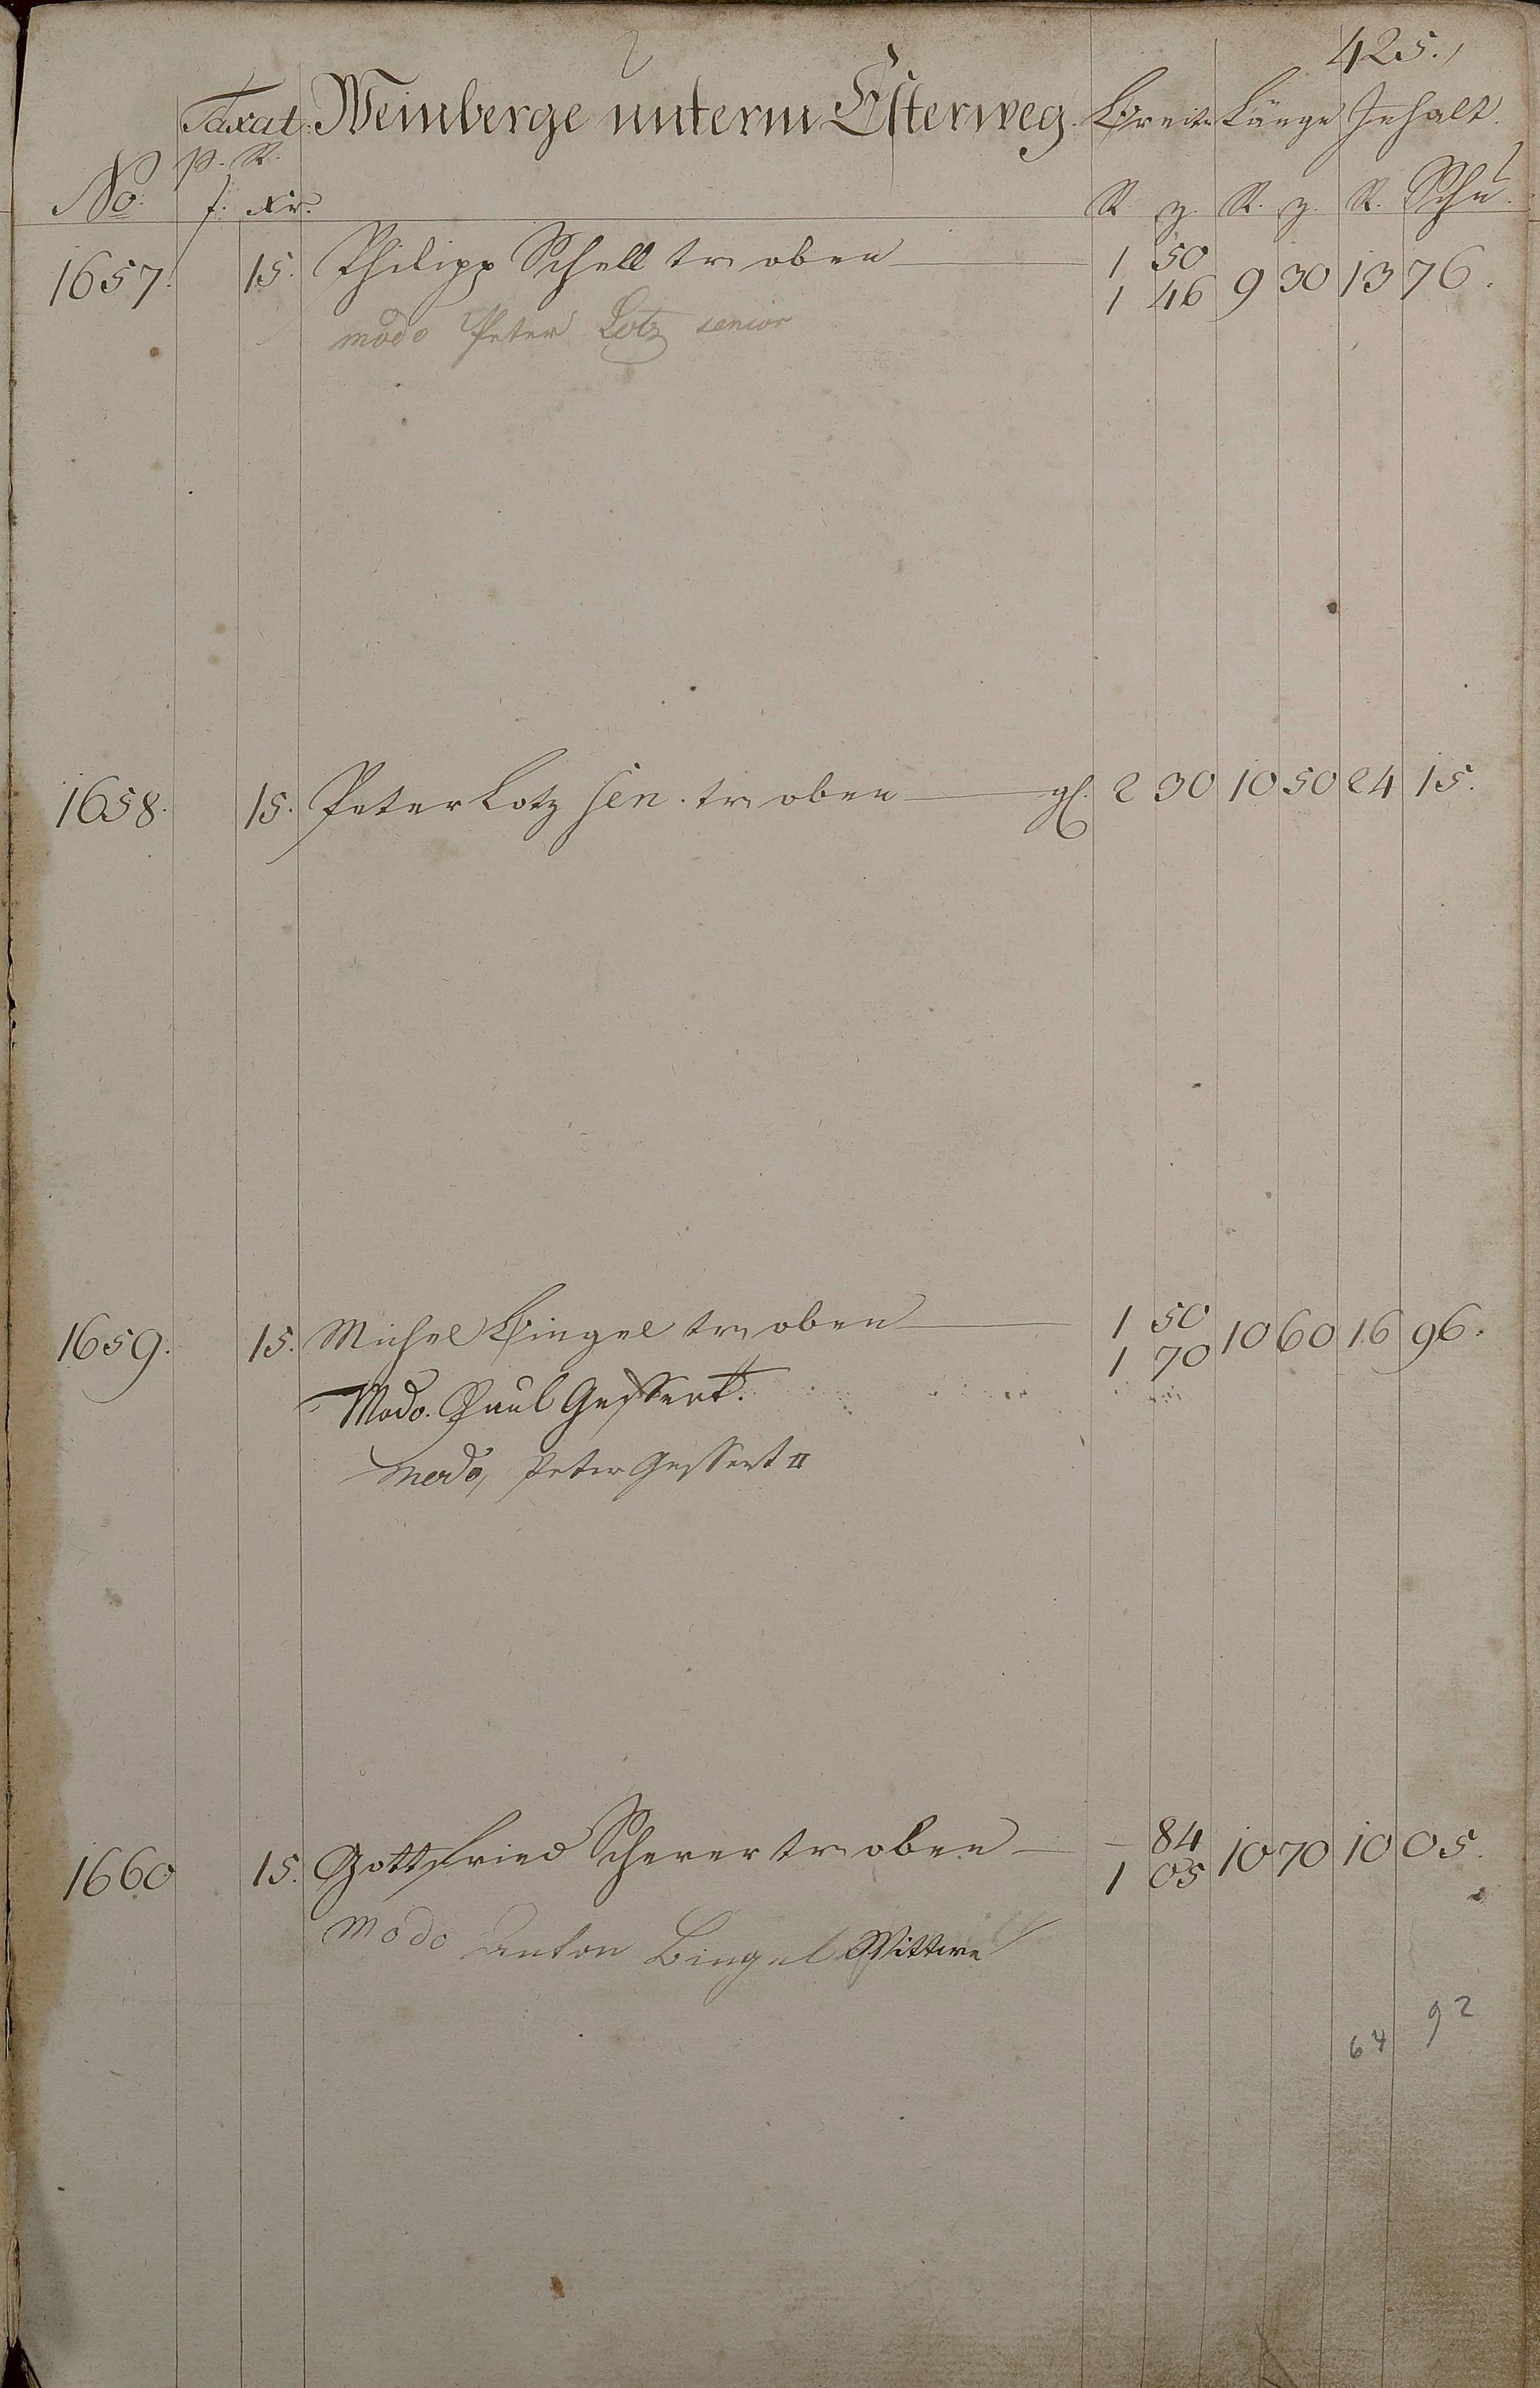 425.
Taxat: Weinberge unterm Esterweg. Breite Länge Inhalt.
p. R.
No. f. xr. R. z. R. z. R. Schu
1657. 15. Philipp Schell tr. oben 1 50 9 30 13 76.
1 46
modo Peter Lotz senior
1658. 15. Peter Lotz sen. tr. oben gl. 2 30 10 50 24 15.
1659. 15. Michel Bingel tr. oben 1 50 10 60 16 96.
1 70
Modo. Paul Gessert.
modo, Peter Gessert II
1660 15. Gottfried Scherer tr. oben — 84 10 70 10 05.
1 05
modo Anton Bingel Wittwe
64 92